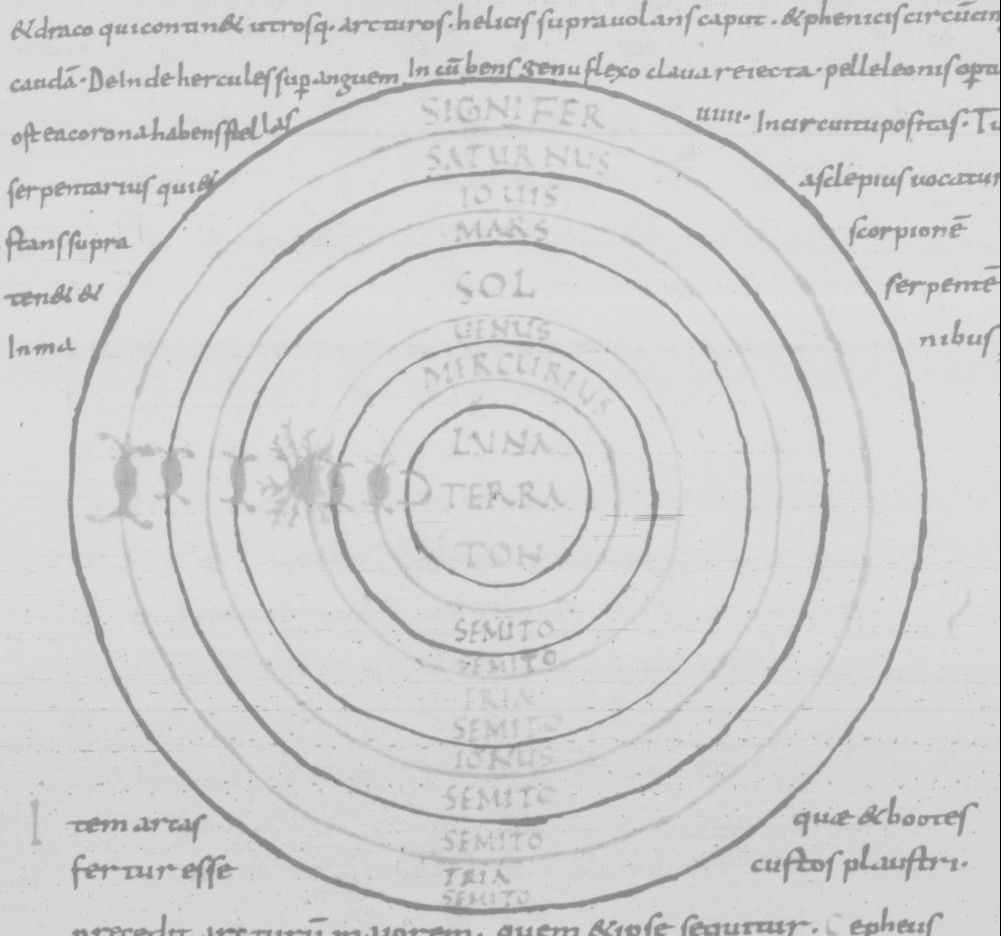 &draco quicontin& utrosq. arcturos. helicis supra uolans caput. &phenicis circūcin
caudā. Deinde hercules sup anguem Incūbens genu flexo claua reiecta. pelleleonis op
ostea corona habens stellas uiiii. Incircuitu positas. Tu
serpentarius qui& asclepius uocatur
stans supra scorpionē
ten& & serpentē
Inma nibus
SIGNIFER
SATURNUS
IOUIS
MARS
SOL
UENUS
MERCURIUS
LUNA
TERRA
TON
SEMITO
SEMITO
TRIA
SEMITO
IONUS
SEMITO
SEMITO
TRIA
SEMITO
Item artas quæ &bootes
fertur esse custos plaustri.
precedit arcturū maiorem. quem &ipse sequitur. Cepheus